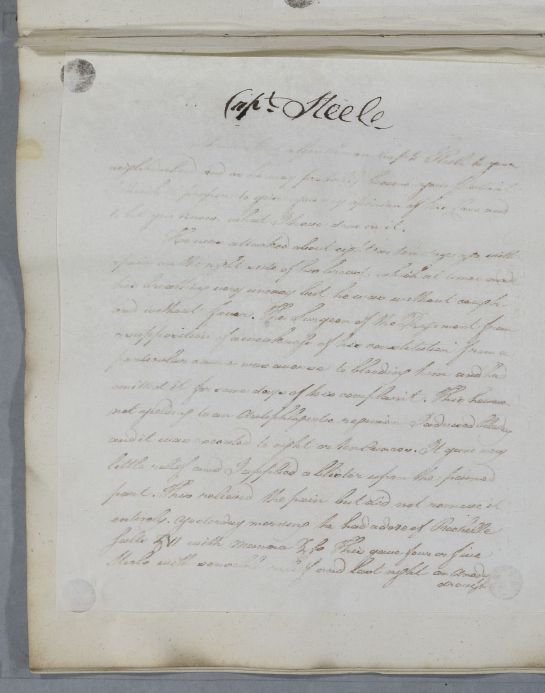 Capt. Steele
Capt. Steele to your
neighbourhood and as he may probably become your Patient
I think proper to give you my opinion of his Case and
to let you know what I have done in it.
He was attacked about eight or ten days ago with
a pain in the right side of his breast which at times made
his breathing very uneasy but he was without cough
and without fever. The Surgeon of the Regiment from
a supposition of weakness of his constitution from a
particular cause was averse to bleeding him and had
omitted it for some days of his complaint. This however
not appearing to me an Antiphlogistic regimen I advised
and it was repeated to eight or ten ounces. It gave very
little relief and I applied a blister upon the pained
part. This relieved the pain but did not remove it
entirely. Yesterday morning he had a dose of Rochelle
Salts with manna This gave four or five
Stools with relief and last night an Anodyne
draught